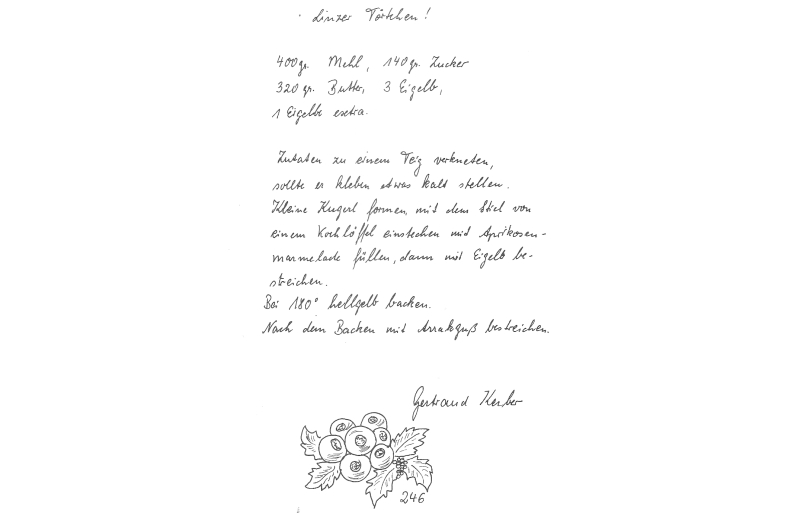 Linzer Törtchen!
400gr. Mehl, 140gr. Zucker
320gr. Butter, 3 Eigelb,
1 Eigelb extra.
Zutaten zu einem Teig verkneten,
sollte er kleben etwas kalt stellen.
Kleine Kugerl formen, mit dem Stiel von
einem Kochlöffel einstechen mit Aprikosen-
marmelade füllen, dann mit Eigelb be-
streichen.
Bei 180° hellgelb backen.
Nach dem Backen mit Arrakguß bestreichen.
Gertraud Kerber
246